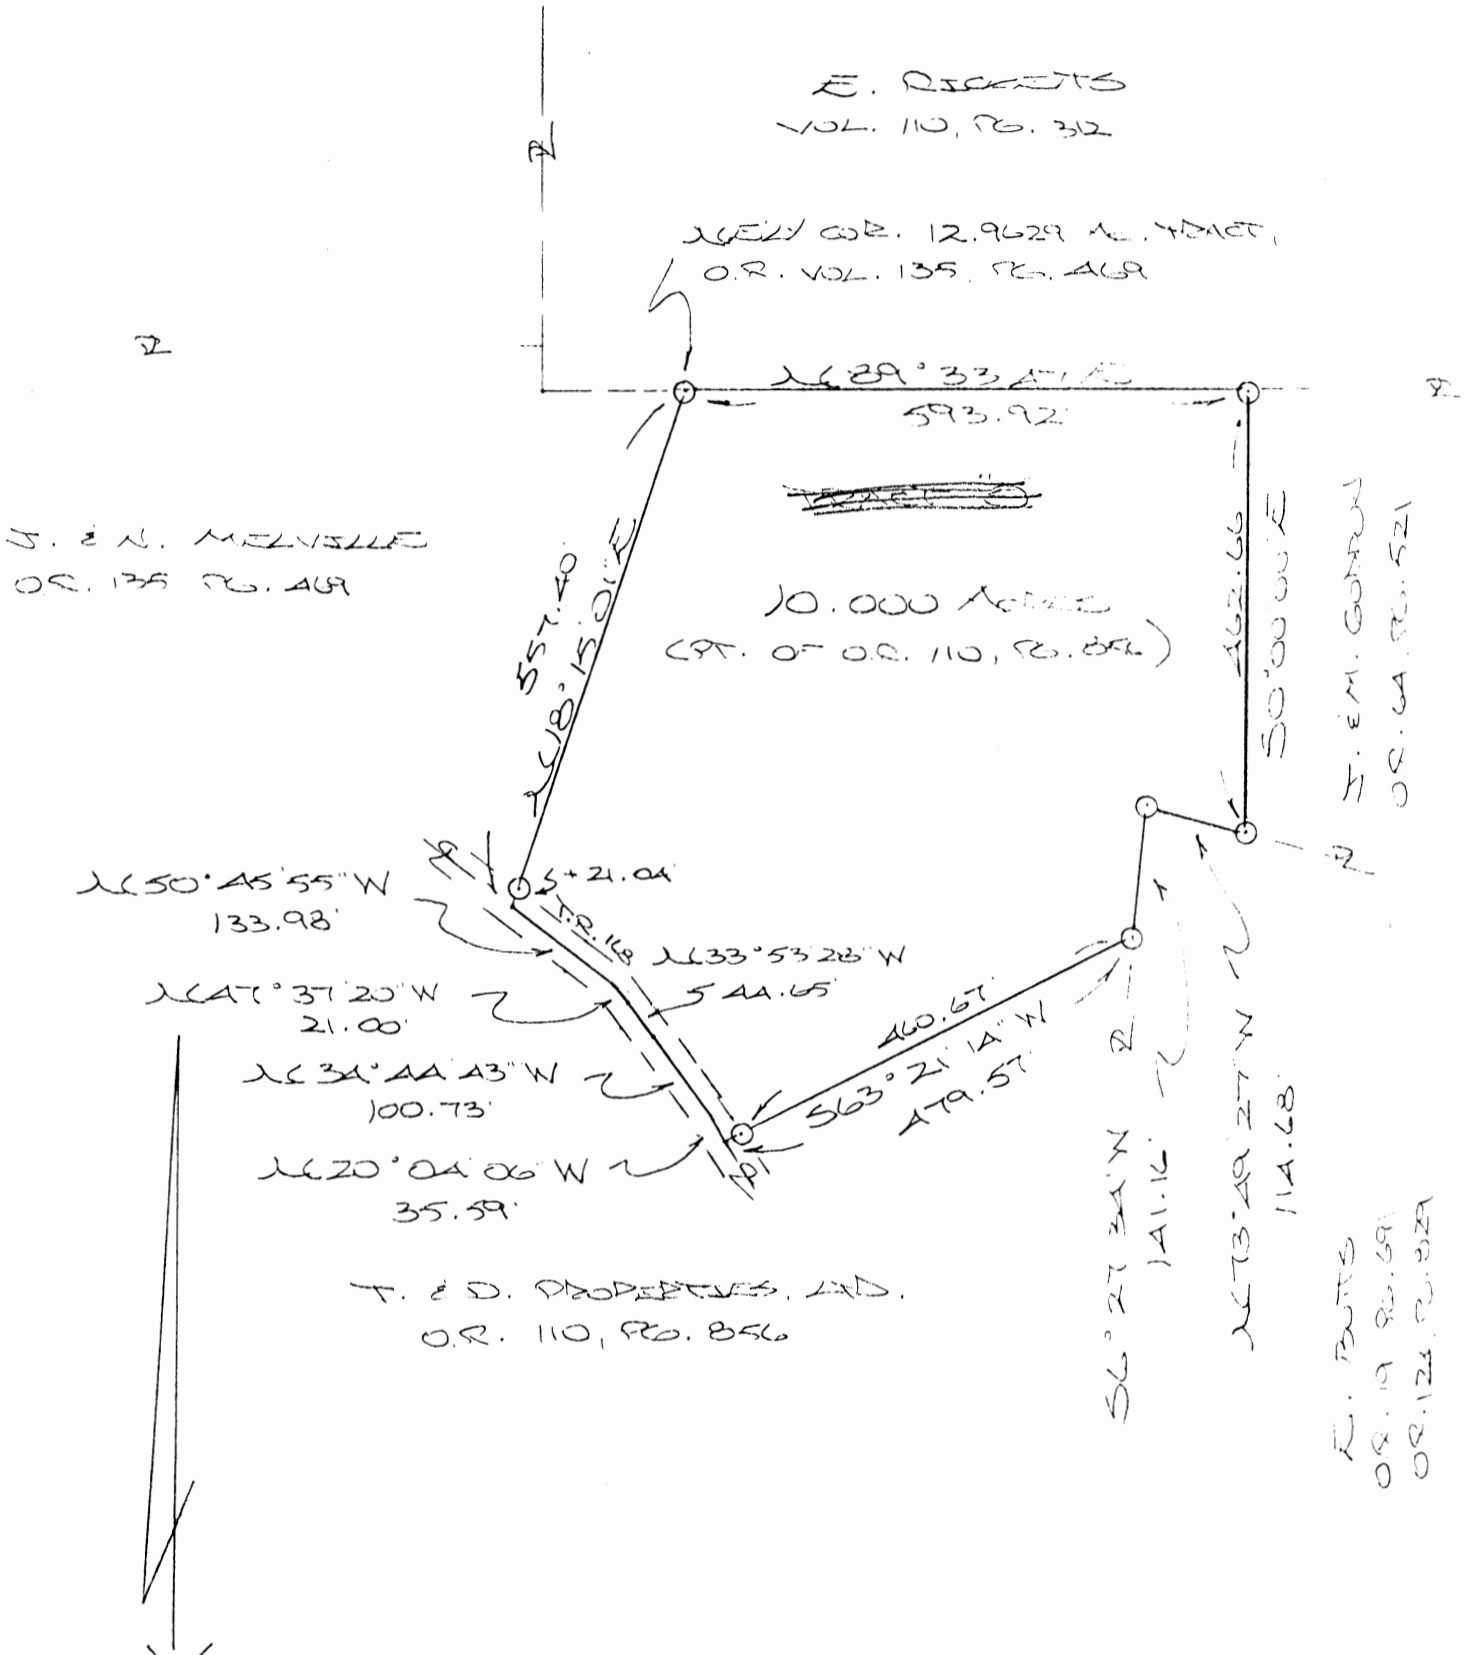 E. RICKETTS
VOL. 110, PG. 312
NELY COR. 12.9629 AC. TRACT,
O.R. VOL. 135, PG. 469
N 89° 33' 47" E
593.92'
J. & N. MELVILLE
O.R. 135 PG. 469
557.40
N 18° 15' 01" E
10.000 ACRES
(PT. OF O.R. 110, PG. 856)
462.66
S 0° 00' 00" E
J. & M. GORDON
O.R. 64, PG. 521
N 50° 45' 55" W
133.98'
21.04'
T.R. 168
N 33° 53' 28" W
544.65'
N 47° 37' 20" W
21.00'
N 34° 44' 43" W
100.73'
N 20° 04' 06" W
35.59'
460.67'
S 63° 21' 14" W
479.57'
S 6° 27' 34" W
141.16'
N 73° 49' 27" W
114.68'
T. & D. PROPERTIES, LTD.
O.R. 110, PG. 856
BUTTS
O.R. 19 PG. 691
O.R. 124, PG. 829